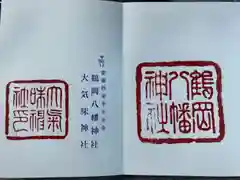 鶴岡
八幡
神社
鶴岡八幡神社
大気味神社
大氣
味神
社印